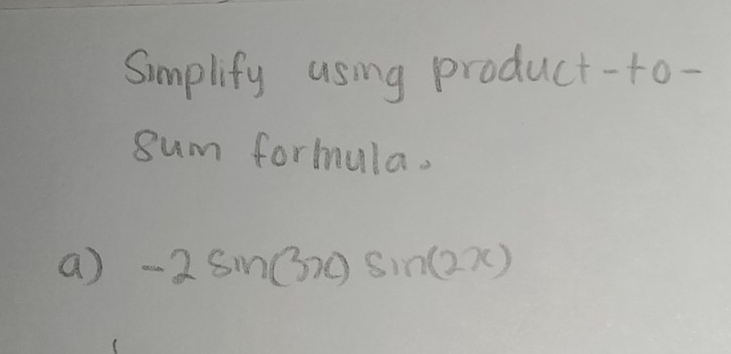 Simplify using product-to-
sum formula.
a) -2 sin(3x) sin(2x)